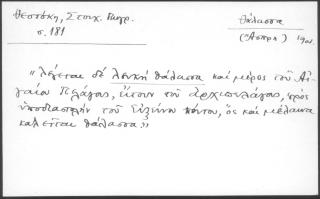 Θεοτόκη, Στοιχ. Γεωγρ.
σ. 181
θάλασσα
(Άσπρη) 1900.
"λέγεται δὲ λευκὴ θάλασσα καὶ μέρος τοῦ Αἰ-
γαίου Πελάγους, ἤτουν τοῦ ἀρχιπελάγους, πρὸς
ὑποδιαστολὴν τοῦ Εὐξείνου πόντου, ὃς καὶ μέλαινα
καλεῖται θάλασσα"